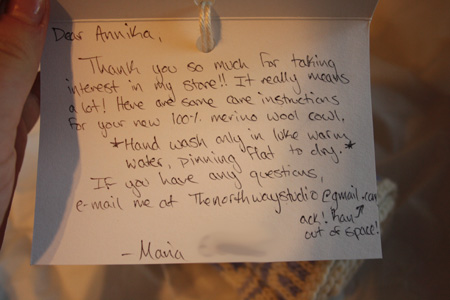 Dear Annika,
Thank you so much for taking
interest in my store!! It really means
a lot! Here are some care instructions
for your new 100% merino wool cowl.
*Hand wash only in luke warm
water, pinning flat to dry.*
If you have any questions,
e-mail me at Thenorthwaystudio@gmail.com
ack! Ran
out of space!
- Maria